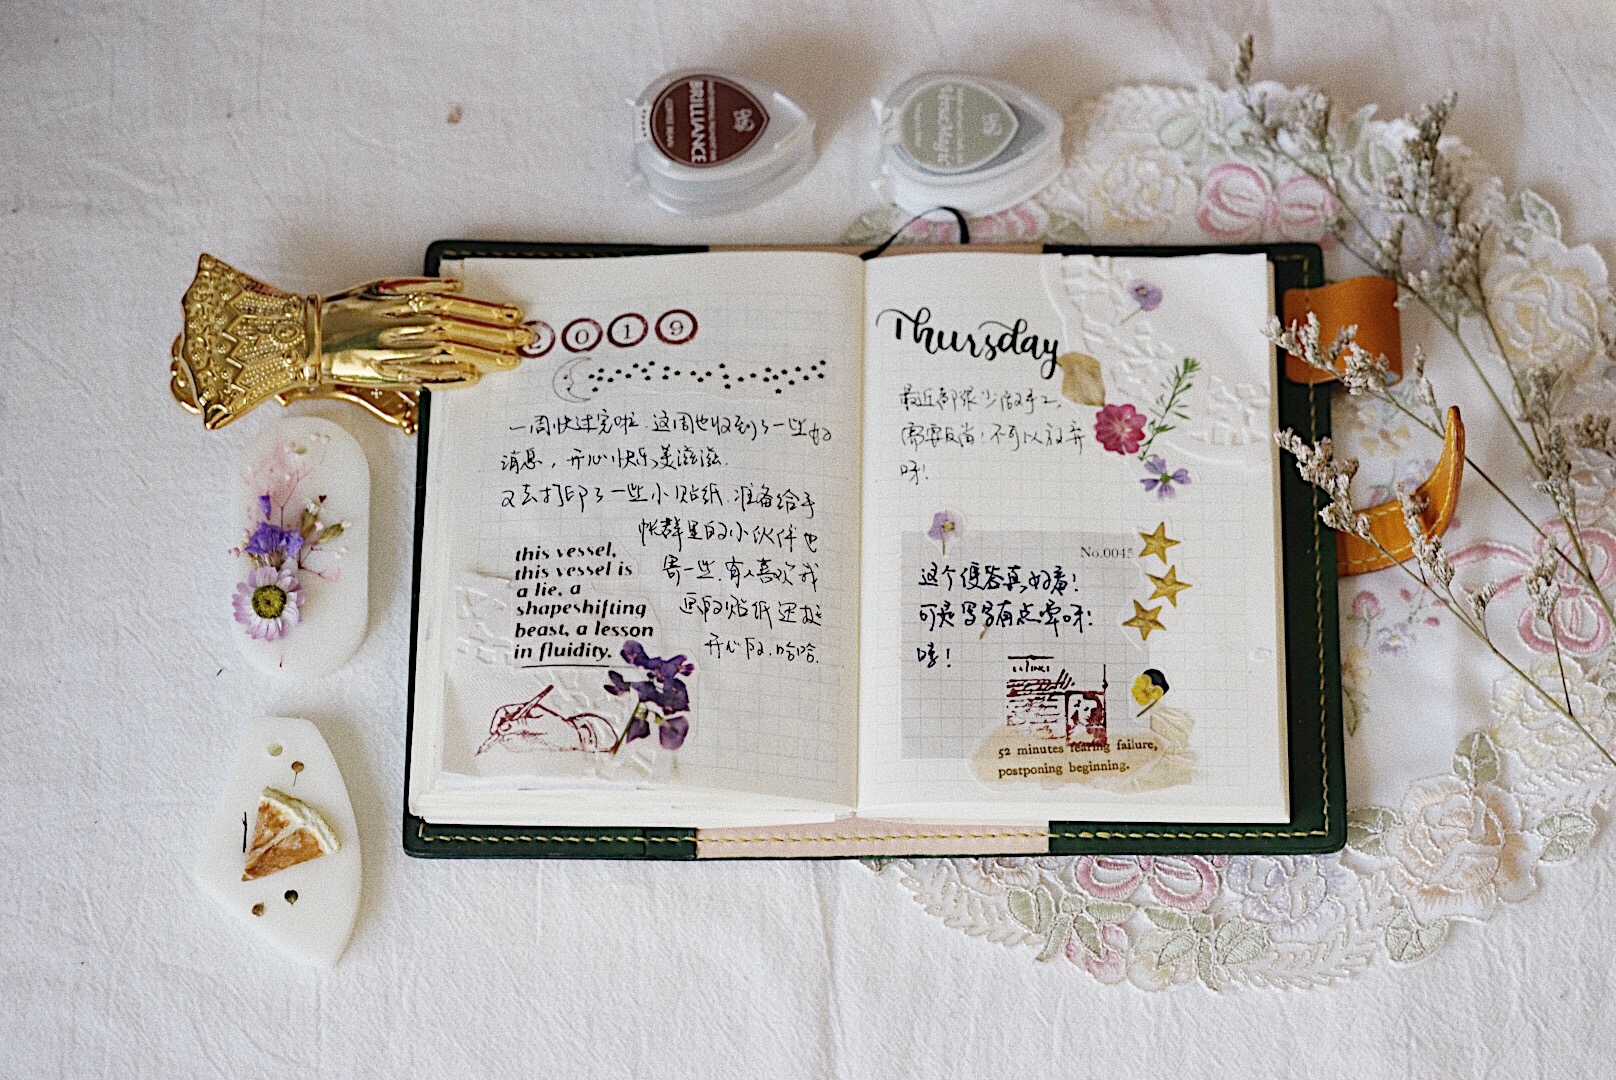 BRILLIANCE
2019
一周快过完啦.这周也收到了一些好
消息，开心快乐美滋滋.
又去打印了一些小贴纸.准备给手
帐群里的小伙伴也
寄一些.有人喜欢我
画的贴纸还挺
开心的.哈哈.
this vessel,
this vessel is
a lie, a
shapeshifting
beast, a lesson
in fluidity.
Thursday
最近都很少做手工.
需要反省!不可以放弃
呀!
No.0045
这个便签真好看!
可是写字有点晕呀!
嘻!
52 minutes fearing failure,
postponing beginning.